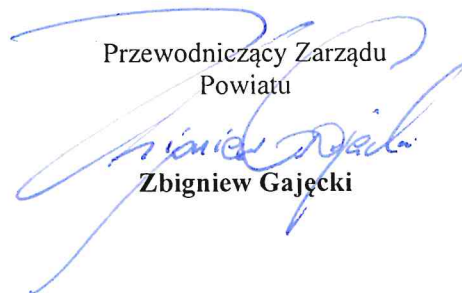 Przewodniczący Zarządu
Powiatu
Zbigniew Gajęcki